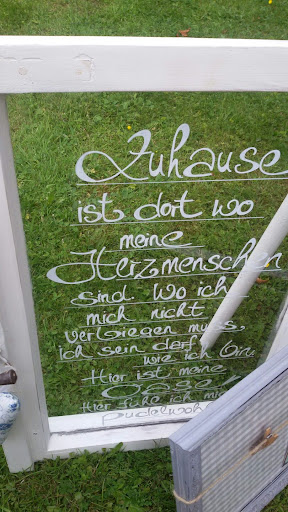 Zuhause
ist dort wo
meine
Herzmenschen
sind. Wo ich
mich nicht
verbiegen muss,
Ich sein darf
wie ich bin.
Hier ist meine
Oase,
Hier fühle ich mich
pudelwohl